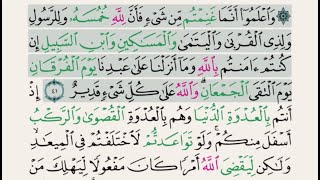 ۞ وَٱعْلَمُوٓا۟ أَنَّمَا غَنِمْتُم مِّن شَىْءٍ فَأَنَّ لِلَّهِ خُمُسَهُۥ وَلِلرَّسُولِ
وَلِذِى ٱلْقُرْبَىٰ وَٱلْيَتَٰمَىٰ وَٱلْمَسَٰكِينِ وَٱبْنِ ٱلسَّبِيلِ إِن
كُنتُمْ ءَامَنتُم بِٱللَّهِ وَمَآ أَنزَلْنَا عَلَىٰ عَبْدِنَا يَوْمَ ٱلْفُرْقَانِ
يَوْمَ ٱلْتَقَى ٱلْجَمْعَانِ وَٱللَّهُ عَلَىٰ كُلِّ شَىْءٍ قَدِيرٌ ٤١ إِذْ
أَنتُم بِٱلْعُدْوَةِ ٱلدُّنْيَا وَهُم بِٱلْعُدْوَةِ ٱلْقُصْوَىٰ وَٱلرَّكْبُ
أَسْفَلَ مِنكُمْ وَلَوْ تَوَاعَدتُّمْ لَٱخْتَلَفْتُمْ فِى ٱلْمِيعَٰدِ
وَلَٰكِن لِّيَقْضِىَ ٱللَّهُ أَمْرًا كَانَ مَفْعُولًا لِّيَهْلِكَ مَنْ